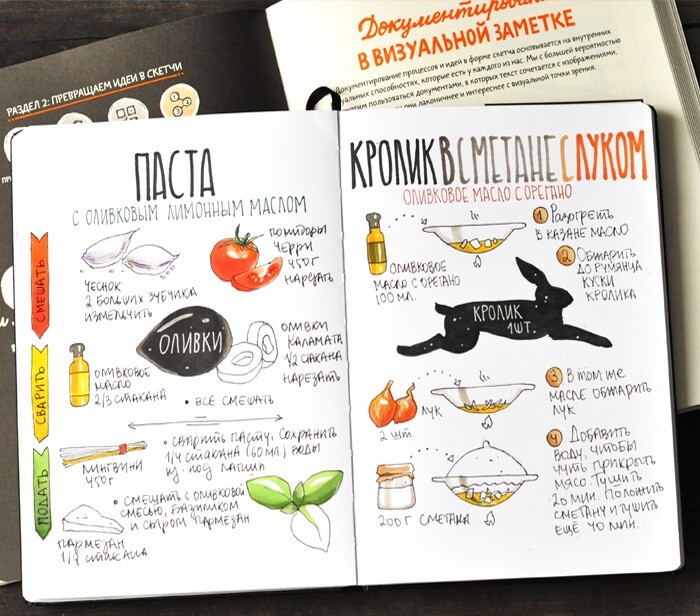 РАЗДЕЛ 2: ПРЕВРАЩАЕМ ИДЕИ В СКЕТЧИ
В ВИЗУАЛЬНОЙ ЗАМЕТКЕ
Документирование процессов и идей в форме скетча основывается на внутренних
способностях, которые есть у каждого из нас. Мы с большей вероятностью
пользоваться документами, в которых текст сочетается с изображениями.
лаконичнее и интереснее с визуальной точки зрения.
ПАСТА
С ОЛИВКОВЫМ ЛИМОННЫМ МАСЛОМ
СМЕШАТЬ
ЧЕСНОК
2 БОЛЬШИХ ЗУБЧИКА
ИЗМЕЛЬЧИТЬ
ПОМИДОРЫ
ЧЕРРИ
450Г
НАРЕЗАТЬ
ОЛИВКИ
ОЛИВКИ
КАЛАМАТА
1/2 СТАКАНА
НАРЕЗАТЬ
СВАРИТЬ
ОЛИВКОВОЕ
МАСЛО
2/3 СТАКАНА
• ВСЕ СМЕШАТЬ
ЛИНГВИНИ
450Г
• СВАРИТЬ ПАСТУ. СОХРАНИТЬ
1/4 СТАКАНА (60МЛ.) ВОДЫ
ИЗ-ПОД ЛАПШИ
ПОДАТЬ
• СМЕШАТЬ С ОЛИВКОВОЙ
СМЕСЬЮ, БАЗИЛИКОМ
И СЫРОМ ПАРМЕЗАН
ПАРМЕЗАН
1/4 СТАКАНА
КРОЛИК В СМЕТАНЕ С ЛУКОМ
ОЛИВКОВОЕ МАСЛО С ОРЕГАНО
ОЛИВКОВОЕ
МАСЛО С ОРЕГАНО
100 МЛ.
1 РАЗОГРЕТЬ
В КАЗАНЕ МАСЛО
2 ОБЖАРИТЬ
ДО РУМЯНЦА
КУСКИ
КРОЛИКА
КРОЛИК
1ШТ.
ЛУК
2 ШТ.
3 В ТОМ ЖЕ
МАСЛЕ ОБЖАРИТЬ
ЛУК
200Г СМЕТАНА
4 ДОБАВИТЬ
ВОДУ, ЧТОБЫ
ЧУТЬ ПРИКРЫТЬ
МЯСО. ТУШИТЬ
20 МИН. ПОЛОЖИТЬ
СМЕТАНУ И ТУШИТЬ
ЕЩЁ 40 МИН.